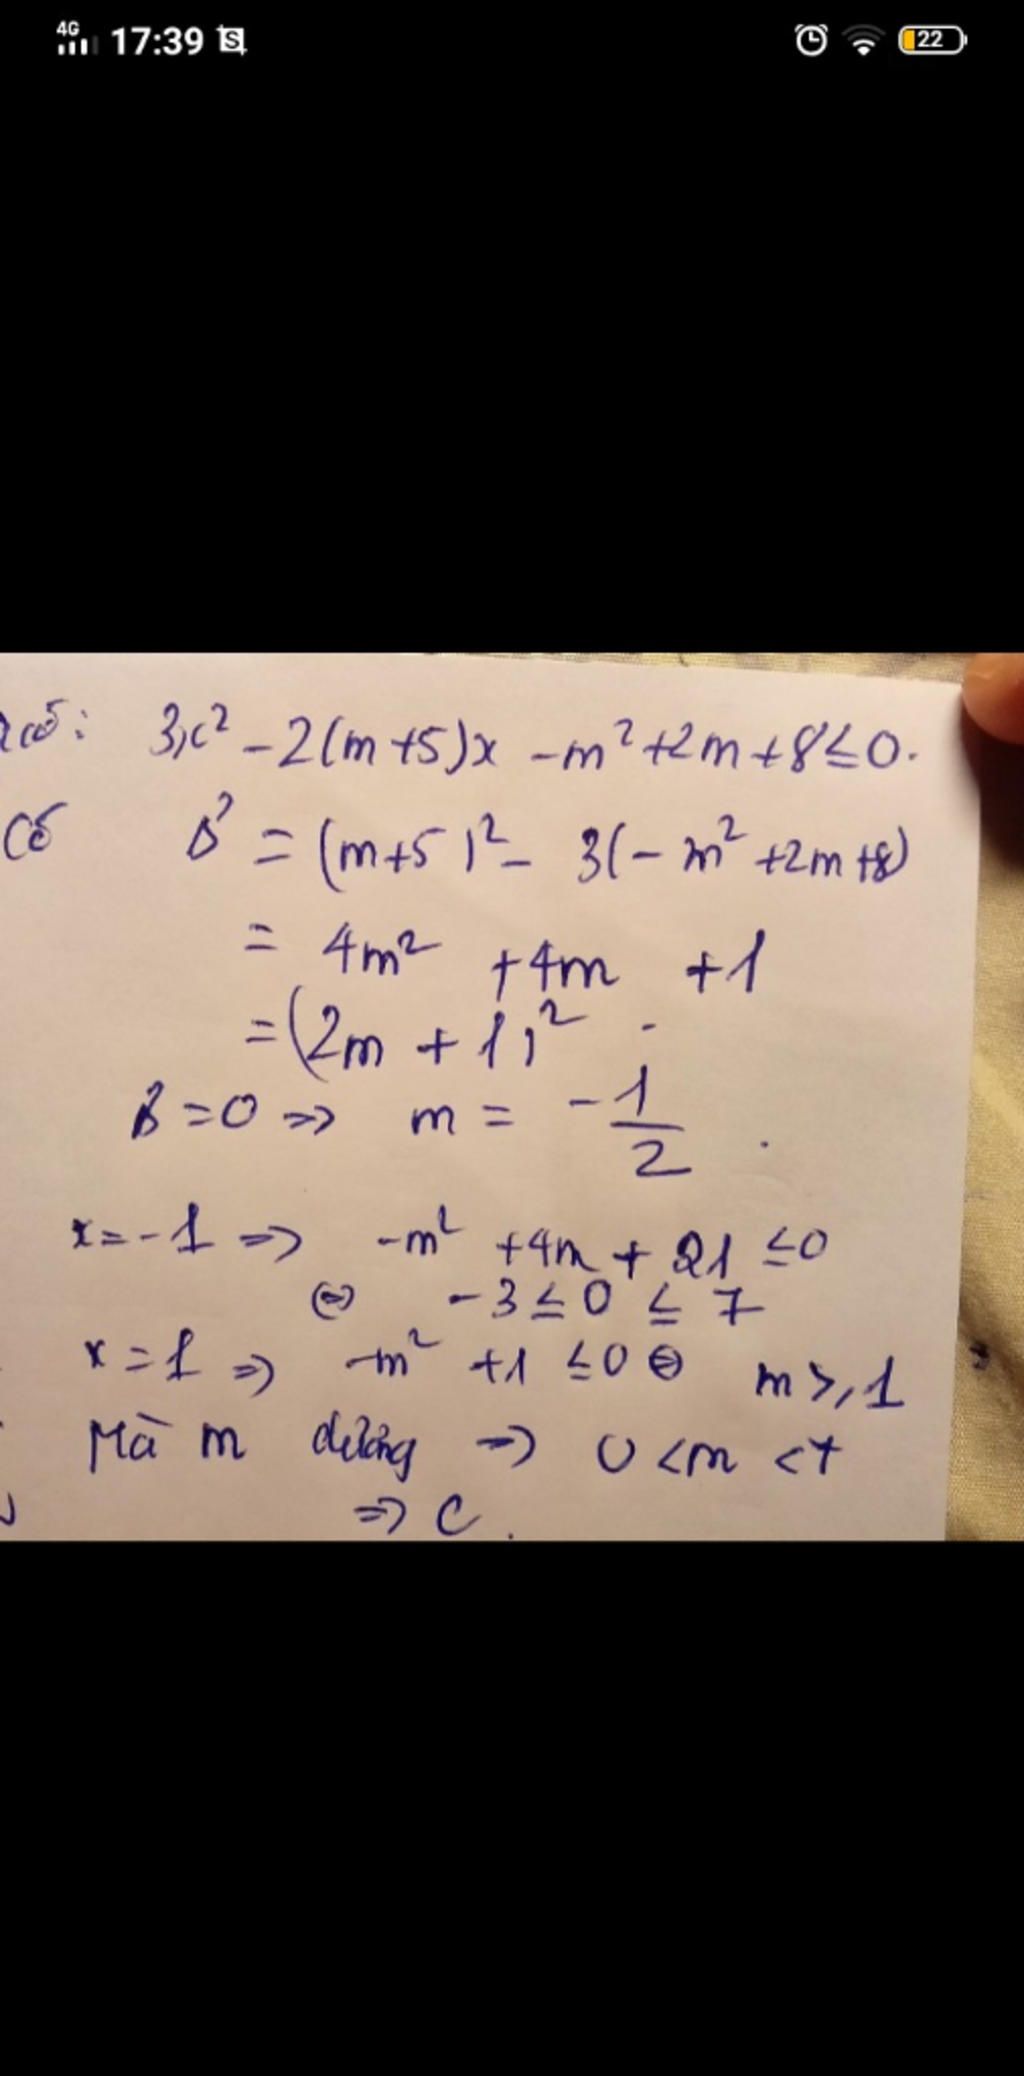 4G 17:39 22
có: 3x² - 2(m+5)x - m² + 2m + 8 ≤ 0.
Có Δ' = (m+5)² - 3(- m² + 2m + 8)
= 4m² + 4m + 1
= (2m + 1)².
Δ' = 0 => m = -1/2.
x = -1 => -m² + 4m + 21 ≤ 0
⇔ -3 ≤ 0 ≤ 7
x = 1 => -m² + 1 ≤ 0 ⇔ m >, 1
Mà m dương => 0 < m < 7
=> C.